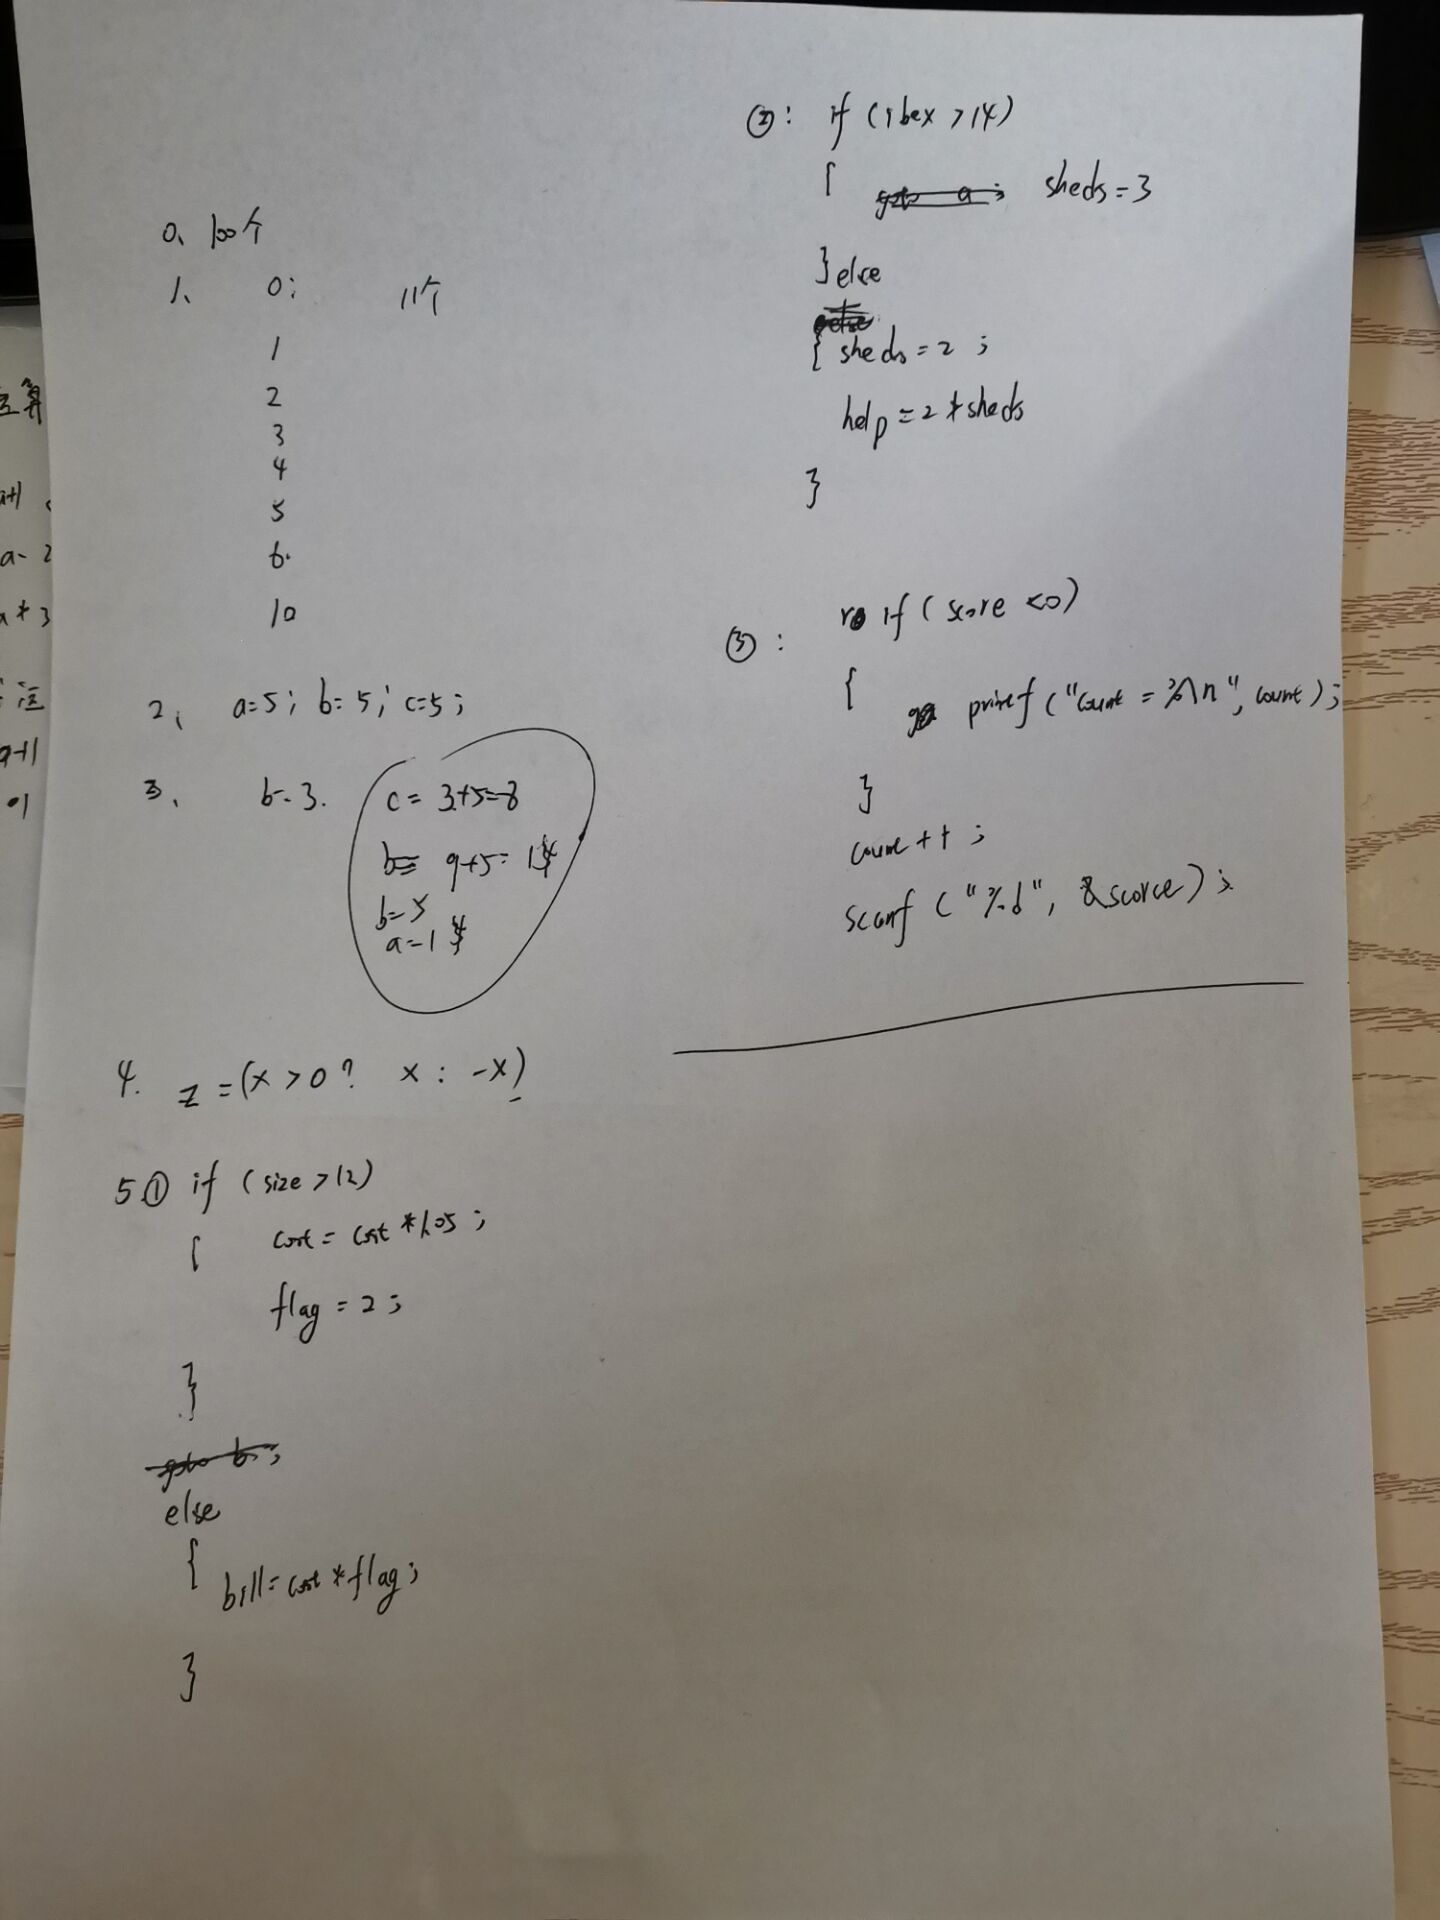 0、100个
1、 0; 11个
1
2
3
4
5
6.
10
2、 a=5; b=5; c=5;
3、 b=3. c= 3+5=8
b= 9+5=
b=5
4. z=(x>0? x: -x)
5.① if (size>12)
{ cost = cost *1.05;
flag = 2;
}
goto b;
else
{ bill=cost *flag;
}
②: if (ibex >14)
{ goto a; sheds=3
}else
else
{ sheds=2;
help=2*sheds
}
③: if ( score <0)
{ printf ("count = %\n", count);
}
count++;
scanf ("%d", &scorce);
运算
a+1
a-2
a*3
a+1